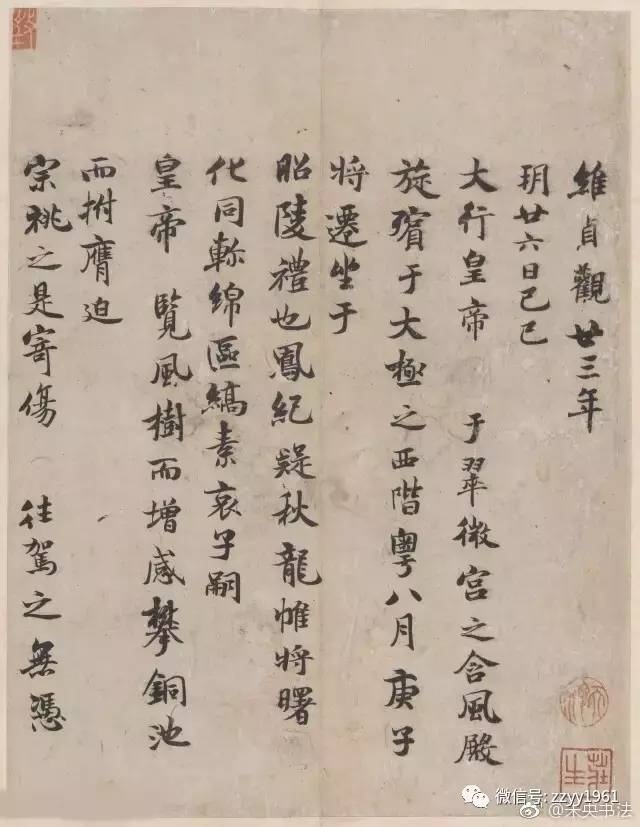 維貞觀廿三年
玥廿六日己巳
大行皇帝 于翠微宮之含風殿
旋殯于大極之西階粵八月庚子
將遷坐于
昭陵禮也鳳紀疑秋龍帷將曙
化同軫綿區縞素哀子嗣
皇帝 覽風樹而增感攀銅池
而拊膺迫
宗祧之是寄傷 往駕之無憑
微信号: zzyy1961
@未央书法